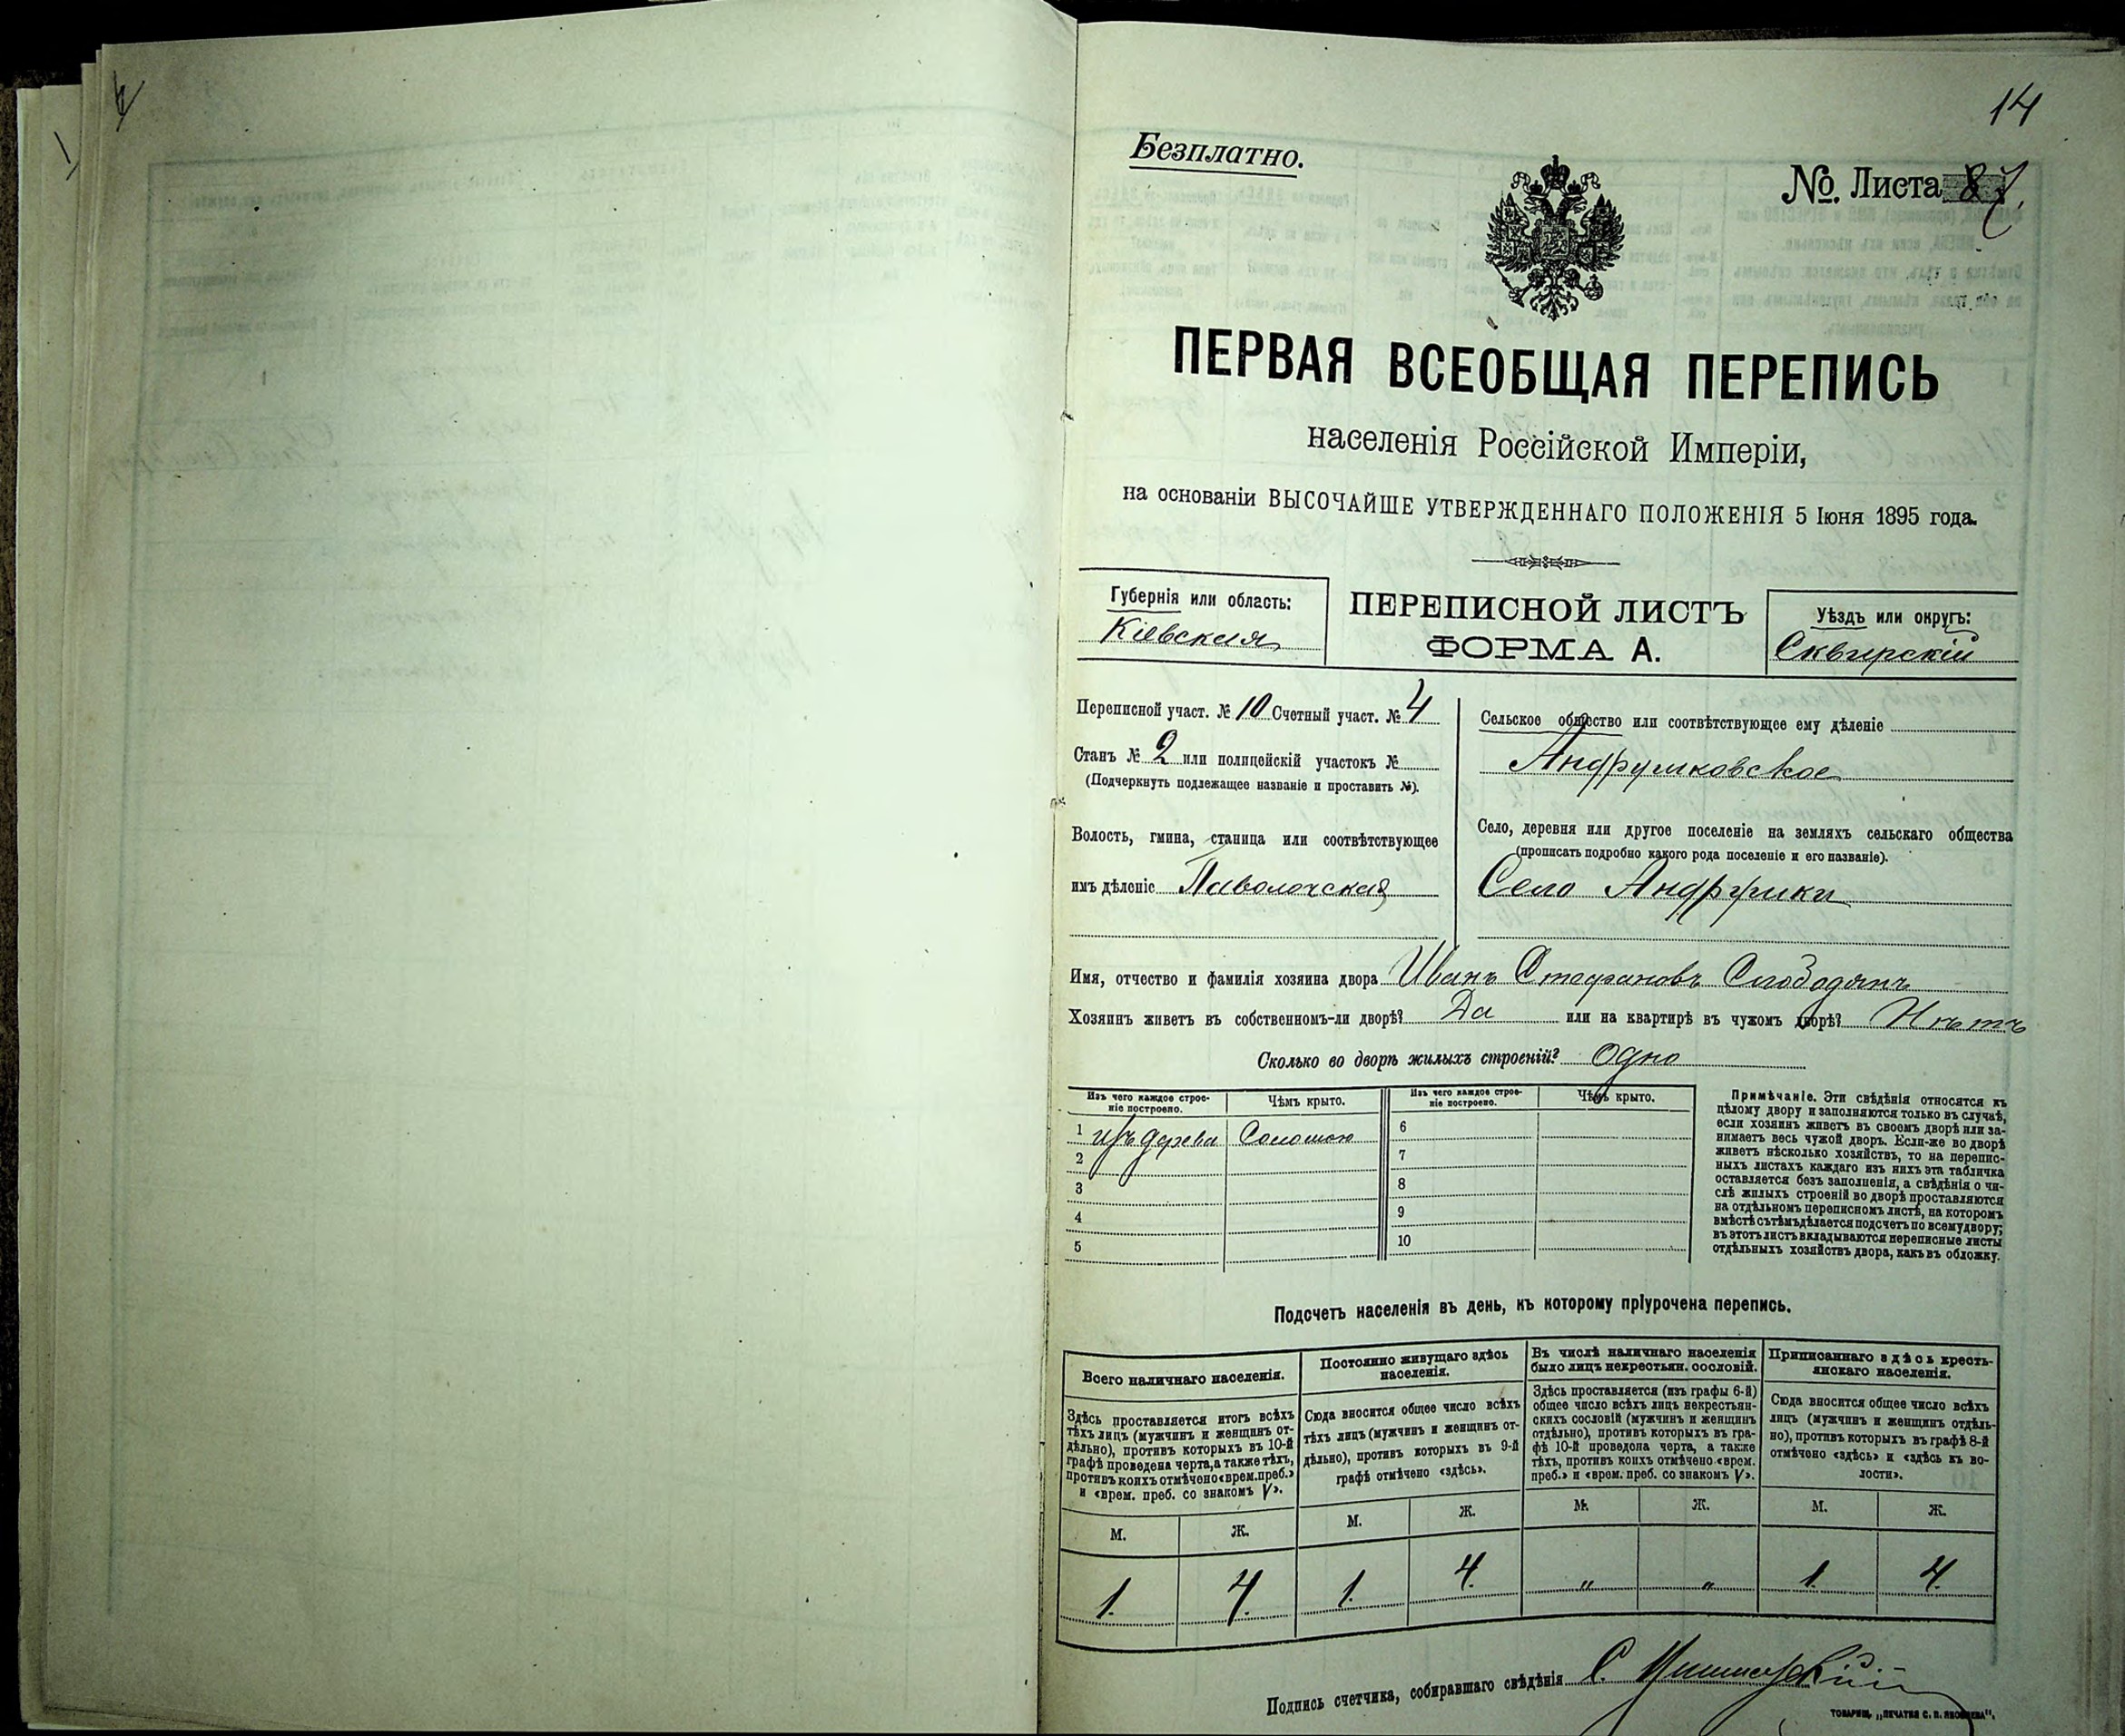 14
Безплатно.
№ Листа 87.
ПЕРВАЯ ВСЕОБЩАЯ ПЕРЕПИСЬ
населенія Россійской Имперіи,
на основаніи ВЫСОЧАЙШЕ УТВЕРЖДЕННАГО ПОЛОЖЕНІЯ 5 Іюня 1895 года.
Губернія или область:
Кіевская
ПЕРЕПИСНОЙ ЛИСТЪ
ФОРМА А.
Уѣздъ или округъ:
Сквирскій
Переписной участ. № 10 Счетный участ. № 4
Станъ № 2 или полицейскій участокъ №
(Подчеркнуть подлежащее названіе и проставить №).
Волость, гмина, станица или соотвѣтствующее
имъ дѣленіе Паволочская
Сельское общество или соотвѣтствующее ему дѣленіе
Андрушковское
Село, деревня или другое поселеніе на земляхъ сельскаго общества
(прописать подробно какого рода поселеніе и его названіе).
Село Андрушки
Имя, отчество и фамилія хозяина двора Иванъ Стефановъ Слободянъ
Хозяинъ живетъ въ собственномъ-ли дворѣ? Да или на квартирѣ въ чужомъ дворѣ? Нѣтъ
Сколько во дворѣ жилыхъ строеній? Одно
Изъ чего каждое строе-
ніе построено.
Чѣмъ крыто.
Изъ чего каждое строе-
ніе построено.
Чѣмъ крыто.
1 изъ дерева Соломою
2
3
4
5
6
7
8
9
10
Примѣчаніе. Эти свѣдѣнія относятся къ
цѣлому двору и заполняются только въ случаѣ,
если хозяинъ живетъ въ своемъ дворѣ или за-
нимаетъ весь чужой дворъ. Если-же во дворѣ
живетъ нѣсколько хозяйствъ, то на перепис-
ныхъ листахъ каждаго изъ нихъ эта табличка
оставляется безъ заполненія, а свѣдѣнія о чи-
слѣ жилыхъ строеній во дворѣ проставляются
на отдѣльномъ переписномъ листѣ, на которомъ
вмѣстѣ съ тѣмъ дѣлается подсчетъ по всему двору;
въ этотъ листъ вкладываются переписные листы
отдѣльныхъ хозяйствъ двора, какъ въ обложку.
Подсчетъ населенія въ день, къ которому пріурочена перепись.
Всего наличнаго населенія.
Здѣсь проставляется итогъ всѣхъ
тѣхъ лицъ (мужчинъ и женщинъ от-
дѣльно), противъ которыхъ въ 10-й
графѣ проведена черта, а также тѣхъ,
противъ коихъ отмѣчено «врем. преб.»
и «врем. преб. со знакомъ V».
М.
Ж.
1.
4.
Постоянно живущаго здѣсь
населенія.
Сюда вносится общее число всѣхъ
тѣхъ лицъ (мужчинъ и женщинъ от-
дѣльно), противъ которыхъ въ 9-й
графѣ отмѣчено «здѣсь».
М.
Ж.
1.
4.
Въ числѣ наличнаго населенія
было лицъ некрестьян. сословій.
Здѣсь проставляется (изъ графы 6-й)
общее число всѣхъ лицъ некрестьян-
скихъ сословій (мужчинъ и женщинъ
отдѣльно), противъ которыхъ въ гра-
фѣ 10-й проведена черта, а также
тѣхъ, противъ коихъ отмѣчено «врем.
преб.» и «врем. преб. со знакомъ V».
М.
Ж.
"
"
Приписаннаго здѣсь кресть-
янскаго населенія.
Сюда вносится общее число всѣхъ
лицъ (мужчинъ и женщинъ отдѣль-
но), противъ которыхъ въ графѣ 8-й
отмѣчено «здѣсь» и «здѣсь къ во-
лости».
М.
Ж.
1.
4.
Подпись счетчика, собиравшаго свѣдѣнія С.
ТОВАРИЩ. „ПЕЧАТНЯ С. П. ЯКОВЛЕВА".